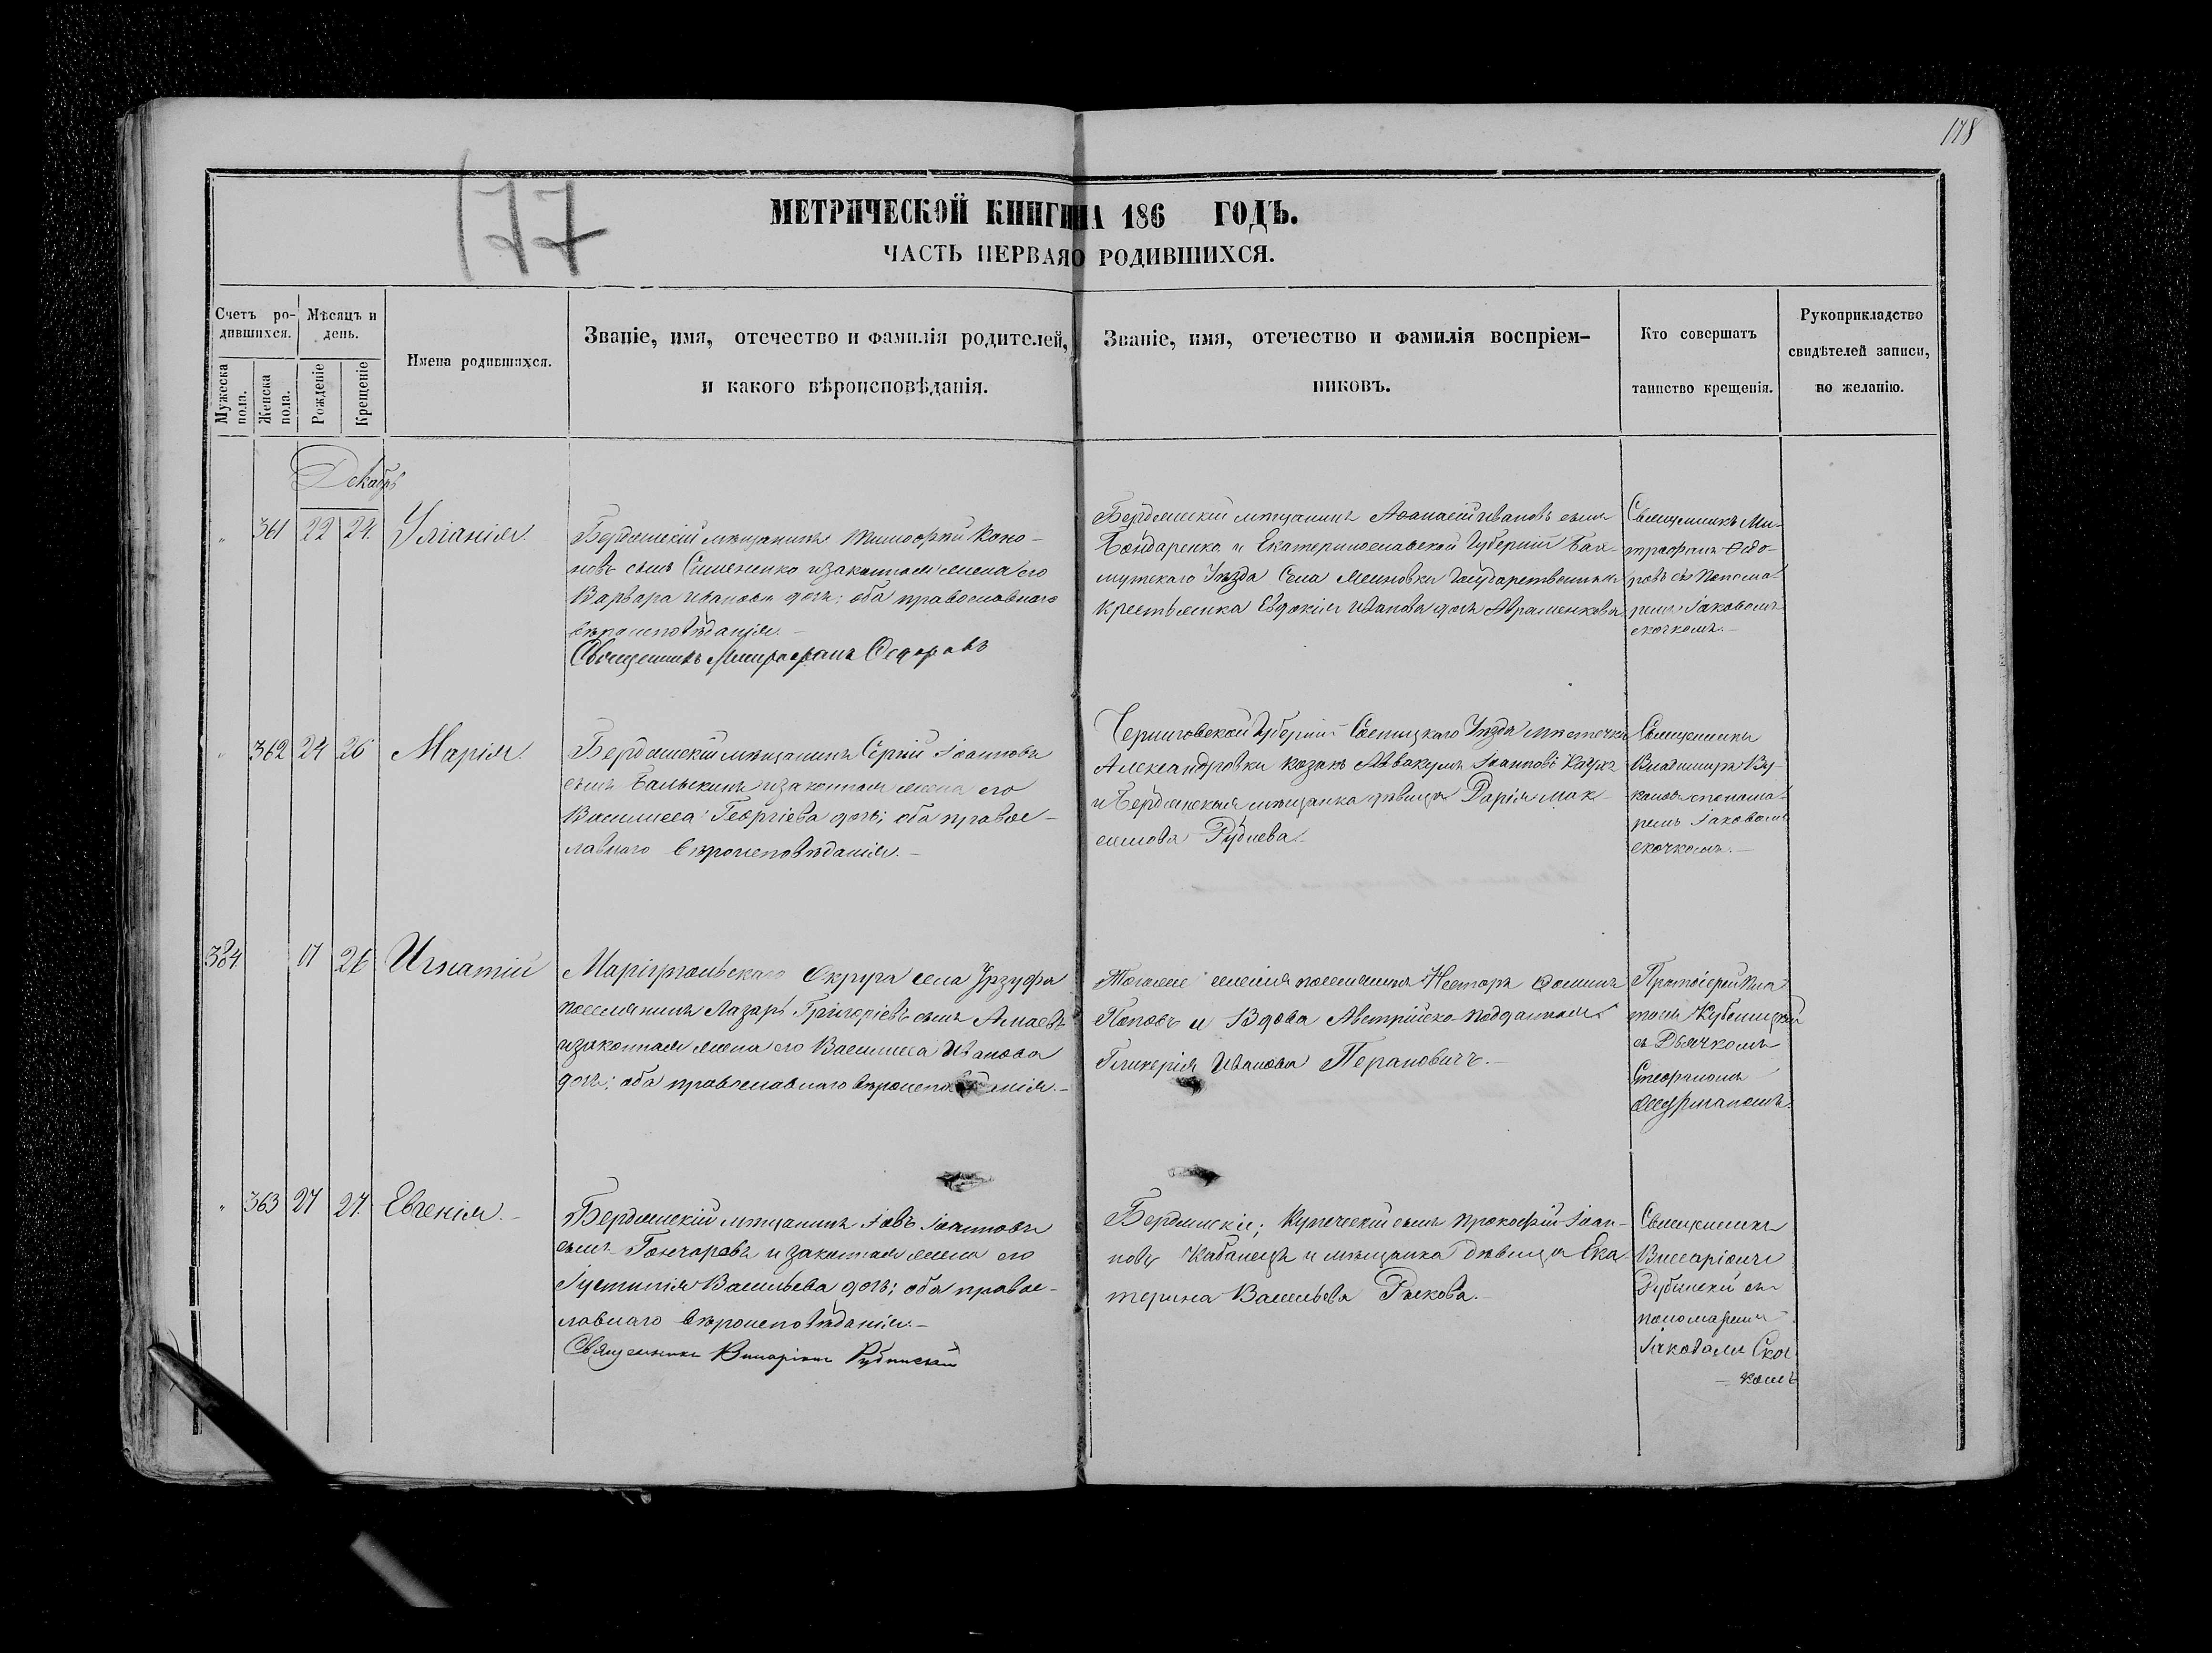 178
177
МЕТРИЧЕСКОЙ КНИГИ НА 186 ГОДЪ.
ЧАСТЬ ПЕРВАЯ О РОДИВШИХСЯ.
Счетъ ро-
дившихся.
Мужеска
пола.
Женска
пола.
Мѣсяцъ и
день.
Рожденіе
Крещеніе
Имена родившихся.
Званіе, имя, отечество и фамилія родителей,
и какого вѣроисповѣданія.
Званіе, имя, отечество и фамилія воспріем-
никовъ.
Кто совершатъ
таинство крещенія.
Рукоприкладство
свидѣтелей записи,
по желанію.
Декабрь
" 361 22 24. Уліанія.
Бердянскій мѣщанинъ Тимофей Коно-
новъ сынъ Симоненко и законная жена его
Варвара Иванова дочь; оба православнаго
вѣроисповѣданія.-
Священникъ Митрофанъ Федоровъ
Бердянскій мѣщанинъ Афанасій Ивановъ сынъ
Бондаренко и Екатеринославской Губерніи Бах-
мутскаго Уѣзда Села государственная
крестьянка Евдокія Иванова дочь Авраменкова
Священникъ Ми-
трофанъ Ѳедо-
ровъ съ Понома-
ремъ Іаковомъ
скочкомъ.-
" 362 24 26 Марія.
Бердянскій мѣщанинъ Сергій Іоанновъ
сынъ и законная жена его
Василисса Георгіева дочь; оба правос-
лавнаго вѣроисповѣданія.-
Черниговской Губерніи Сосницкаго Уѣзда мѣстечка
Александровки козакъ Аввакумъ Іоанновъ
и Бердянская мѣщанка дѣвица Дарія Мак-
симова Руднева.
Священникъ
Владимиръ Ву-
съ понома-
ремъ Іаковомъ
скочкомъ.-
384. 17 26 Игнатій
Маріупольскаго Округа села Урзуфа
поселянинъ Лазарь Григоріевъ сынъ
и законная жена его Василисса Иванова
дочь; оба православнаго вѣроисповѣданія.-
Тогоже селенія поселянинъ Несторъ Фоминъ
Поповъ и Вдова Австрійско-подданная
Гликерія Иванова Перановичъ.-
Протоіерей Пла-
тонъ
съ Дьячкомъ
Стефаномъ
" 363 27 27. Евгенія.-
Бердянскій мѣщанинъ Іовъ Іоанновъ
сынъ Гончаровъ и законная жена его
Іустинія Васильева дочь; оба правос-
лавнаго вѣроисповѣданія.-
Священникъ Виссаріонъ Рубинскій
Бердянскіе; Купеческій сынъ Прокофій Іоан-
новъ Кабанецъ и мѣщанка дѣвица Ека-
терина Васильева Рыкова.-
Священникъ
Виссаріонъ
Рубинскій съ
пономаремъ
Іаковомъ Скоч-
- комъ